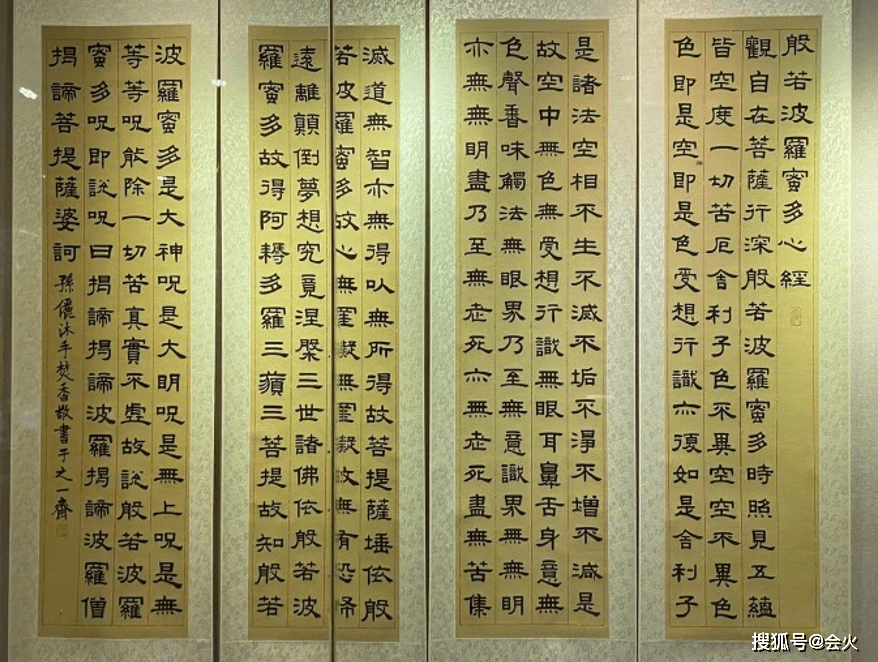 般若波羅蜜多心經
觀自在菩薩行深般若波羅蜜多時照見五蘊
皆空度一切苦厄舍利子色不異空空不異色
色即是空即是色受想行識亦復如是舍利子
是諸法空相不生不滅不垢不淨不增不減是
故空中無色無受想行識無眼耳鼻舌身意無
色聲香味觸法無眼界乃至無意識界無無明
亦無無明盡乃至無老死亦無老死盡無苦集
滅道無智亦無得以無所得故菩提薩埵依般
若波羅蜜多故心無罣礙無罣礙故無有恐怖
遠離顛倒夢想究竟涅槃三世諸佛依般若波
羅蜜多故得阿耨多羅三藐三菩提故知般若
波羅蜜多是大神呪是大明呪是無上呪是無
等等呪能除一切苦真實不虛故說般若波羅
蜜多呪即說呪曰揭諦揭諦波羅揭諦波羅僧
揭諦菩提薩婆訶 孫儷沐手焚香敬書于之一齋
搜狐号@会火